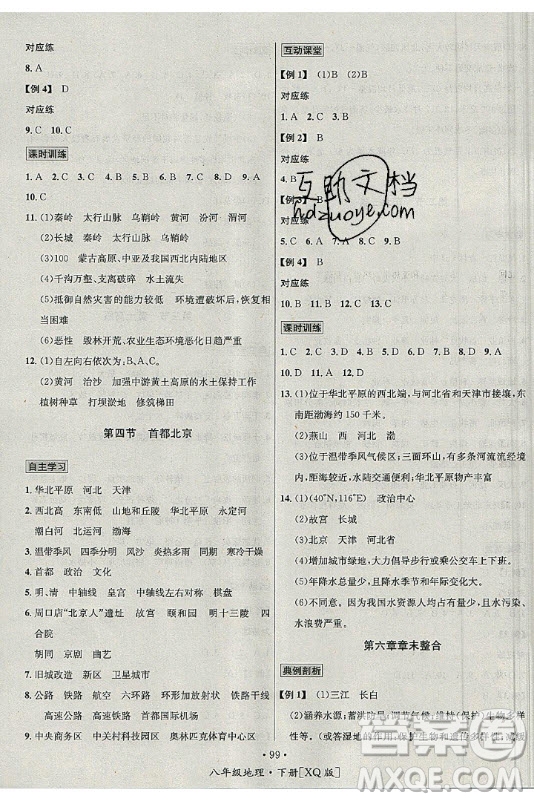 对应练
8. A
【例4】 D
对应练
9. C 10. C
课时训练
1. A 2. C 3. B 4. C 5. C 6. A 7. B 8. C 9. A
10. C
11. (1)秦岭 太行山脉 乌鞘岭 黄河 汾河 渭河
(2)长城 太行山脉 乌鞘岭 秦岭
(3)100 蒙古高原、中亚及我国西北内陆地区
(4)千沟万壑、支离破碎 水土流失
(5)抵御自然灾害的能力较低 环境遭破坏后,恢复相
当困难
(6)恶性 毁林开荒、农业生态环境恶化日趋严重
12. (1)自左向右依次为:B、A、C。
(2)黄河 治沙 加强中游黄土高原的水土保持工作
植树种草 打坝淤地 修筑梯田
第四节 首都北京
自主学习
1. 华北平原 河北 天津
2. 西北高 东南低 山地和丘陵 永定河 拒马河
潮白河 北运河 泃河
3. 温带季风 四季分明 风沙 炎热多雨 寒冷干燥
4. 首都 政治 文化
5. 老城 明、清 中轴线 皇宫 中轴线左右两侧 棋盘
6. 周口店“北京人”遗址 故宫 颐和园 明十三陵 四
合院
7. 旧城改造 新区 卫星城市
8. 公路 铁路 航空 六环路 环形加放射状 铁路
9. 中央商务区 中关村科技园区 奥林匹克体育中心
互动课堂
【例1】 (1)B (2)B
对应练
1. A 2. C 3. B
【例2】 B
对应练
4. B
【例3】 B
对应练
7. C
【例4】 A
对应练
10. B 11. B 12. A 13. C
课时训练
1. C 2. D 3. B 4. B 5. C 6. A 7. B 8. D 9. A
10. D 11. A 12. A
13. (1)位于华北平原的西北端,与河北省和天津市接壤,东
南距渤海约150千米。
(2)燕山 西 西北高、东南低
(3)位于温带季风气候区;三面环山,有多条河流流经
境内,水陆交通便利,地理位置优越。
14. (1)(40°N,116°E) 政治中心
(2)故宫 长城
(3)北京 天津 河北省
(4)增加城市绿地,大力倡导公共交通工具上下班。
(5)年降水总量少,降水量的季节和年际变化大。
(6)不同意。因为我国水资源人均占有量少,我们要节
约用水。
第六章章末整合
典例剖析
【例1】 (1)三江 长白
(2)涵养水源;蓄洪防旱;调节气候;维持(保护)生物
多样性。 保护生物和
互助文档
hdzuoye.com
· 99 ·
八年级地理·下册[XQ版]
答案圈
MXQE.COM